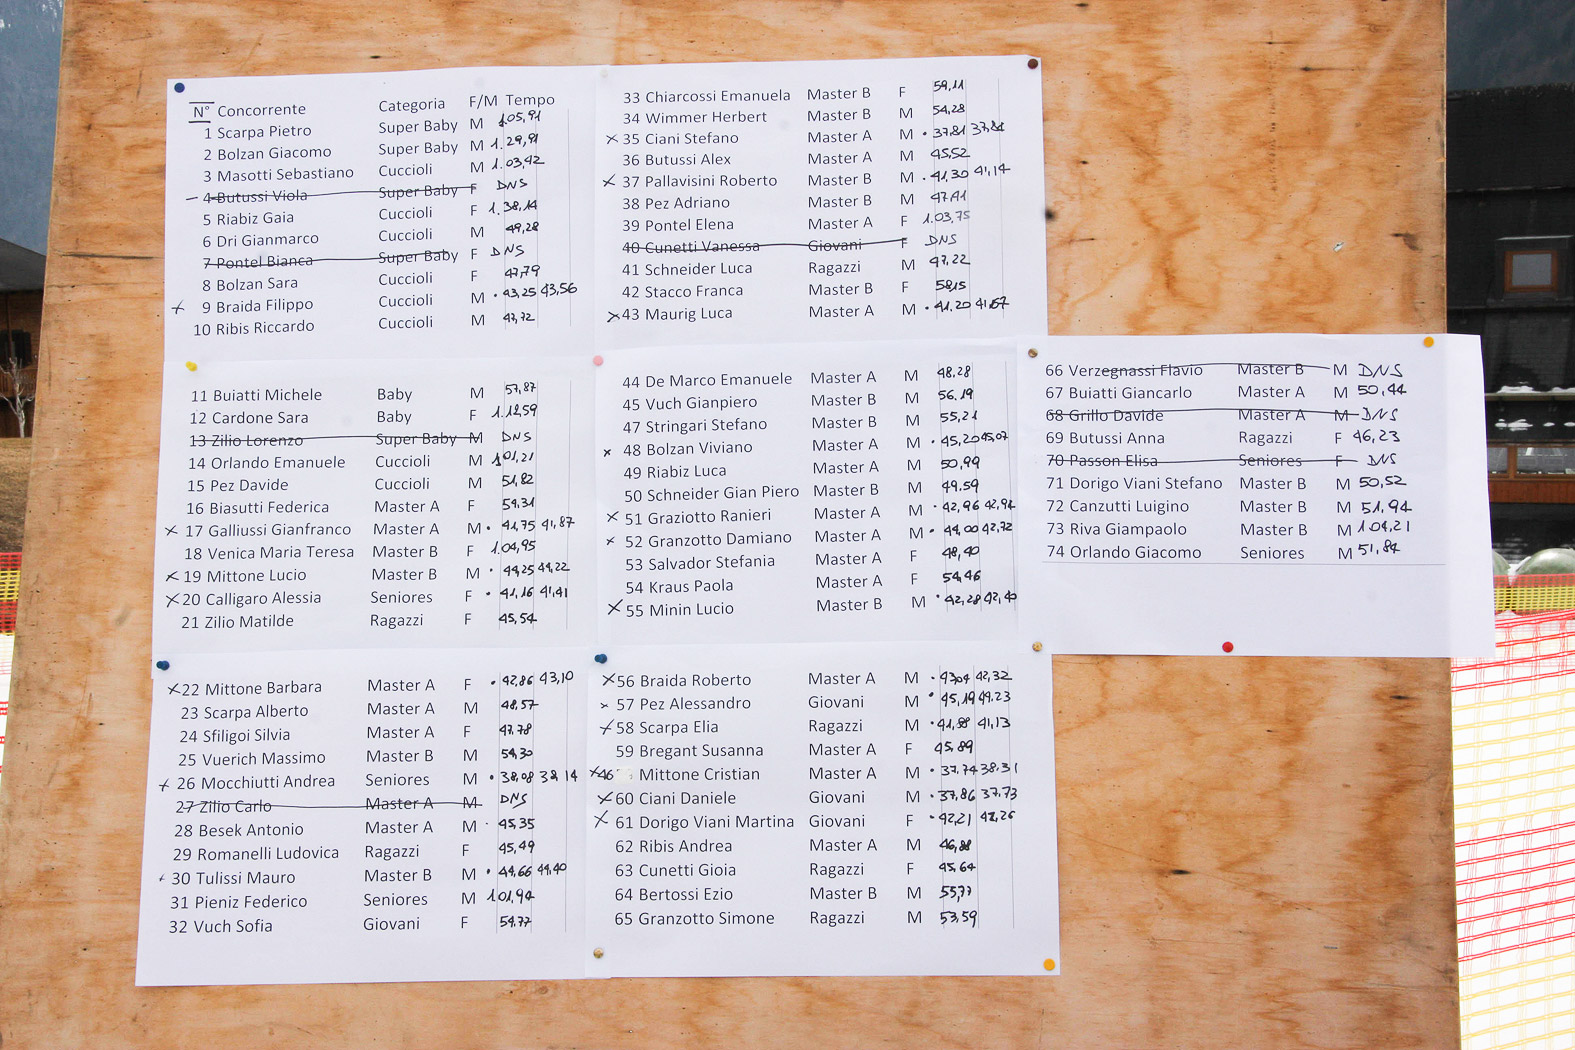 N° Concorrente Categoria F/M Tempo
1 Scarpa Pietro Super Baby M 1.05,91
2 Bolzan Giacomo Super Baby M 1.29,91
3 Masotti Sebastiano Cuccioli M 1.03,42
4 Butussi Viola Super Baby F DNS
5 Riabiz Gaia Cuccioli F 1.38,14
6 Dri Gianmarco Cuccioli M 49,28
7 Pontel Bianca Super Baby F DNS
8 Bolzan Sara Cuccioli F 47,79
9 Braida Filippo Cuccioli M 43,25 43,56
10 Ribis Riccardo Cuccioli M 47,72
11 Buiatti Michele Baby M 57,87
12 Cardone Sara Baby F 1.12,59
13 Zilio Lorenzo Super Baby M DNS
14 Orlando Emanuele Cuccioli M 1.01,21
15 Pez Davide Cuccioli M 51,82
16 Biasutti Federica Master A F 54,31
17 Galliussi Gianfranco Master A M 41,75 41,87
18 Venica Maria Teresa Master B F 1.04,95
19 Mittone Lucio Master B M 44,25 44,22
20 Calligaro Alessia Seniores F 41,16 41,41
21 Zilio Matilde Ragazzi F 45,54
22 Mittone Barbara Master A F 42,86 43,10
23 Scarpa Alberto Master A M 48,57
24 Sfiligoi Silvia Master A F 47,78
25 Vuerich Massimo Master B M 54,30
26 Mocchiutti Andrea Seniores M 38,08 38,14
27 Zilio Carlo Master A M DNS
28 Besek Antonio Master A M 45,35
29 Romanelli Ludovica Ragazzi F 45,49
30 Tulissi Mauro Master B M 44,66 44,40
31 Pieniz Federico Seniores M 1.01,94
32 Vuch Sofia Giovani F 54,77
33 Chiarcossi Emanuela Master B F 59,11
34 Wimmer Herbert Master B M 54,28
35 Ciani Stefano Master A M 37,81
36 Butussi Alex Master A M 45,52
37 Pallavisini Roberto Master B M 41,30 41,14
38 Pez Adriano Master B M 47,41
39 Pontel Elena Master A F 1.03,75
40 Cunetti Vanessa Giovani F DNS
41 Schneider Luca Ragazzi M 47,22
42 Stacco Franca Master B F 58,15
43 Maurig Luca Master A M 41,20 41,67
44 De Marco Emanuele Master A M 48,28
45 Vuch Gianpiero Master B M 56,19
47 Stringari Stefano Master B M 55,21
48 Bolzan Viviano Master A M 45,20 45,07
49 Riabiz Luca Master A M 50,99
50 Schneider Gian Piero Master B M 49,59
51 Graziotto Ranieri Master A M 42,96 42,94
52 Granzotto Damiano Master A M 44,00 42,72
53 Salvador Stefania Master A F 48,40
54 Kraus Paola Master A F 54,46
55 Minin Lucio Master B M 42,28 42,40
56 Braida Roberto Master A M 43,04 42,32
57 Pez Alessandro Giovani M 45,19 49,23
58 Scarpa Elia Ragazzi M 41,88 41,13
59 Bregant Susanna Master A F 45,89
46 Mittone Cristian Master A M 37,74 38,31
60 Ciani Daniele Giovani M 37,86 37,73
61 Dorigo Viani Martina Giovani F 42,21 42,26
62 Ribis Andrea Master A M 46,88
63 Cunetti Gioia Ragazzi F 45,64
64 Bertossi Ezio Master B M 55,77
65 Granzotto Simone Ragazzi M 53,59
66 Verzegnassi Flavio Master B M DNS
67 Buiatti Giancarlo Master A M 50,44
68 Grillo Davide Master A M DNS
69 Butussi Anna Ragazzi F 46,23
70 Passon Elisa Seniores F DNS
71 Dorigo Viani Stefano Master B M 50,52
72 Canzutti Luigino Master B M 51,94
73 Riva Giampaolo Master B M 1.04,21
74 Orlando Giacomo Seniores M 51,84